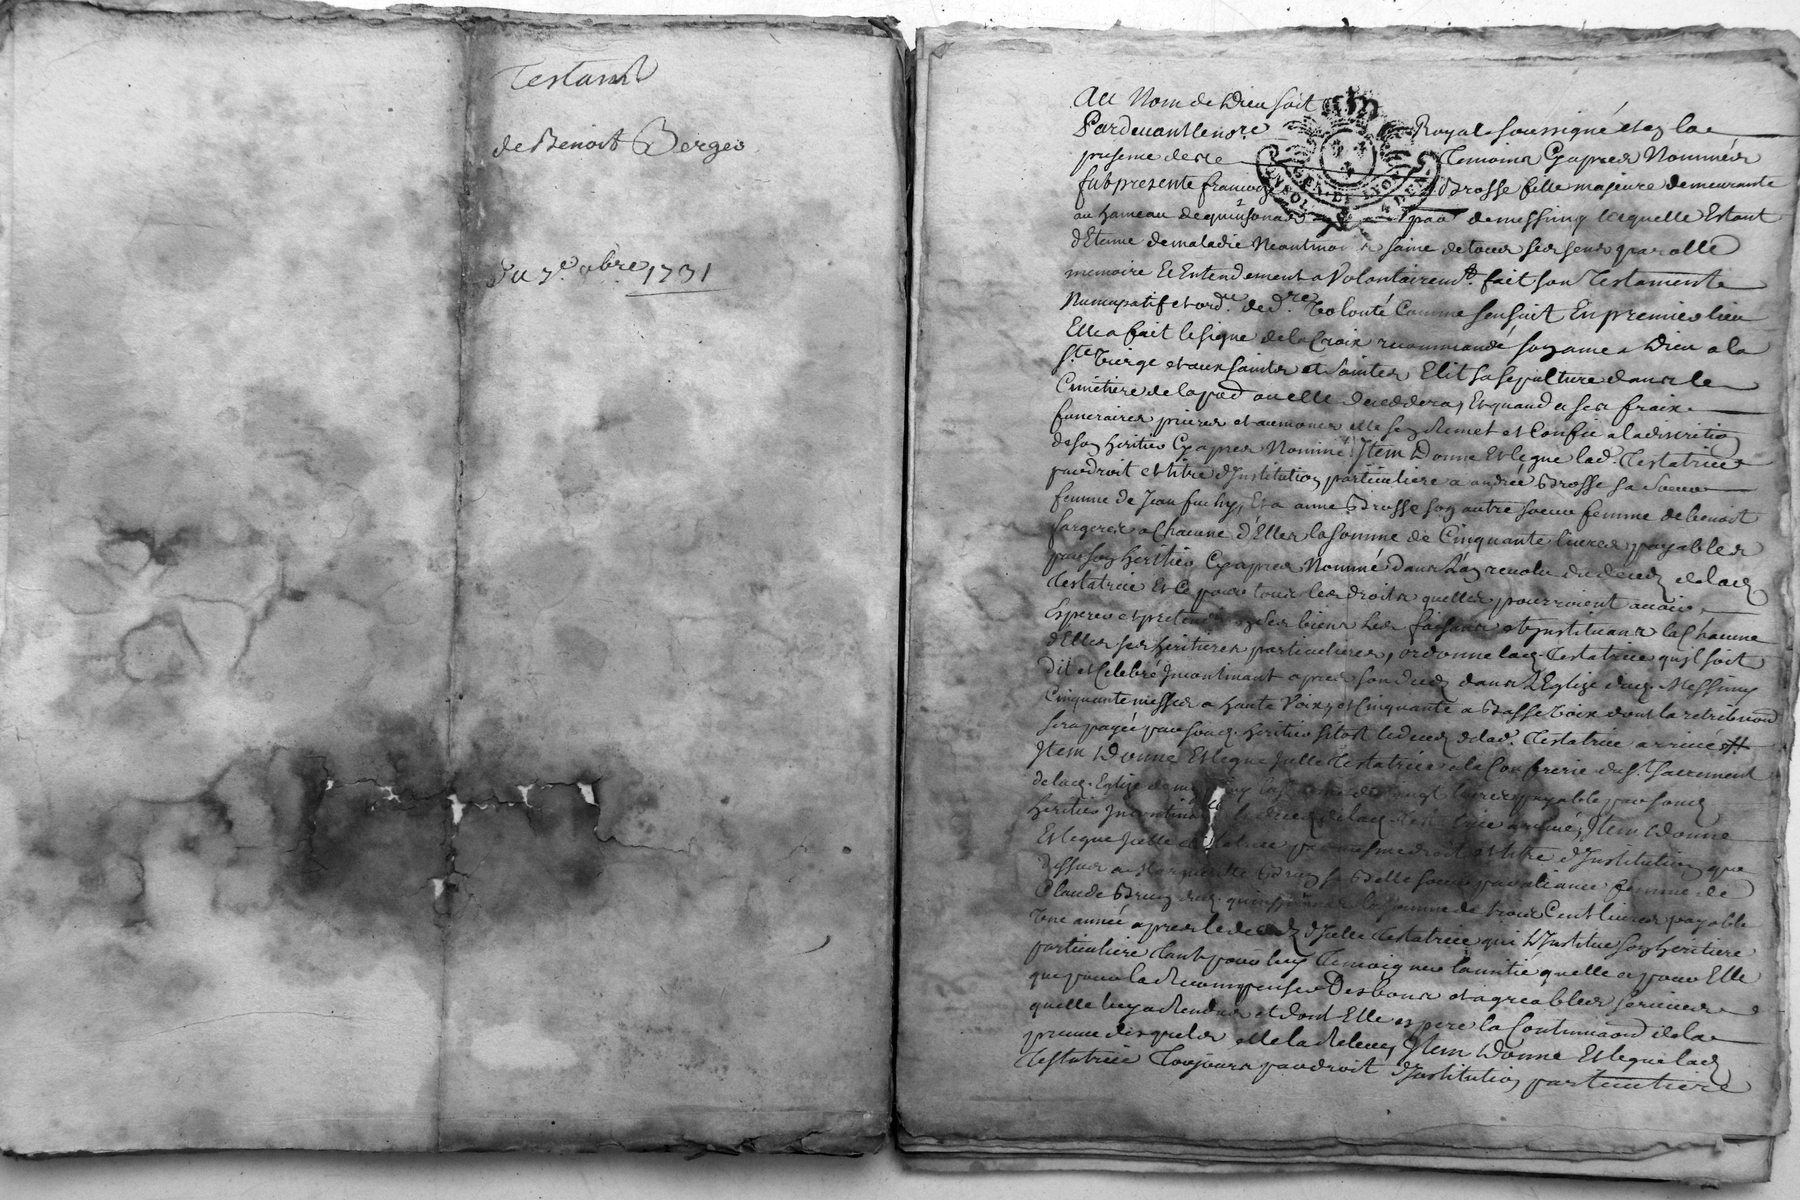 Testamt
de Benoit Berger
Du 7e 8bre 1731
Au Nom de Dieu soit
Pardevant le no.re Royal soussigné et en la
presence des Temoins Cyapres Nommés
fut presente françoise Brosse fille majeure demeurante
au hameau de quinsonas de messimy laquelle Estant
d'Etenue de maladie Neantmoins saine de tous ses sens parolle
memoire Et Entendement a Volontairemt. fait son Testament
Nuncupatif et ord.re de d.re Volonté Comme s'ensuit En premier lieu
Elle a fait le signe de la Croix recommandé son ame a Dieu a la
S.te Vierge et aux saints et saintes Elit sa sepulture dans le
Cimetiere de la par. ou elle decedera, Et quand a ses fraix
funeraires prieres et aumones elle s'en Remet et Confie a la discretion
de son heritier Cyapres Nommé Item Donne Et legue lad. Testatrice
par droit et titre d'Institution particuliere a andrée Brosse sa soeur
femme de Jean fuchy, Et a anne Brosse son autre soeur femme de benoit
a Chacune d'Elles la somme de Cinquante livres payables
par son heritier Cyapres Nommé dans l'an revolu du deced de lad.
Testatrice Et Ce pour tous les droits quelles pourroient avoir
Esperer et pretendre en ses biens les faisant et Instituant la Chacune
d'Elles ses heritieres particulieres, ordonne lad. Testatrice qu'il soit
dit et Celebré Incontinant apres son deced dans l'Eglise dud. Messimy
Cinquante messes a haute Voix, et Cinquante a Basse Voix dont la retribution
sera payée par sond. heritier sitost le deced de lad. Testatrice arrivé
Item Donne Et legue Icelle Testatrice a la Confrerie du St. Sacrement
de lad. Eglise de messimy la somme de vingt livres payable par sond.
heritier Incontinant le deced de lad. Testatrice arrivé, Item Donne
Et legue Icelle Testatrice par mesme droit et titre d'Institution que
dessus a Marguerite sa Belle soeur par aliance femme de
Claude dud. quinsonas la somme de trois Cent livres payable
Une année apres le deced d'Icelle Testatrice qui l'Institue son heritiere
particuliere Tant pour luy Temoigner l'amitié quelle a pour Elle
que pour la Recompenser Des bons et agreables services
quelle luy a Rendus et dont Elle espere la Continuaon de la
preuve desquels elle la Releve, Item Donne Et legue lad.
Testatrice Toujours par droit d'Institution particuliere